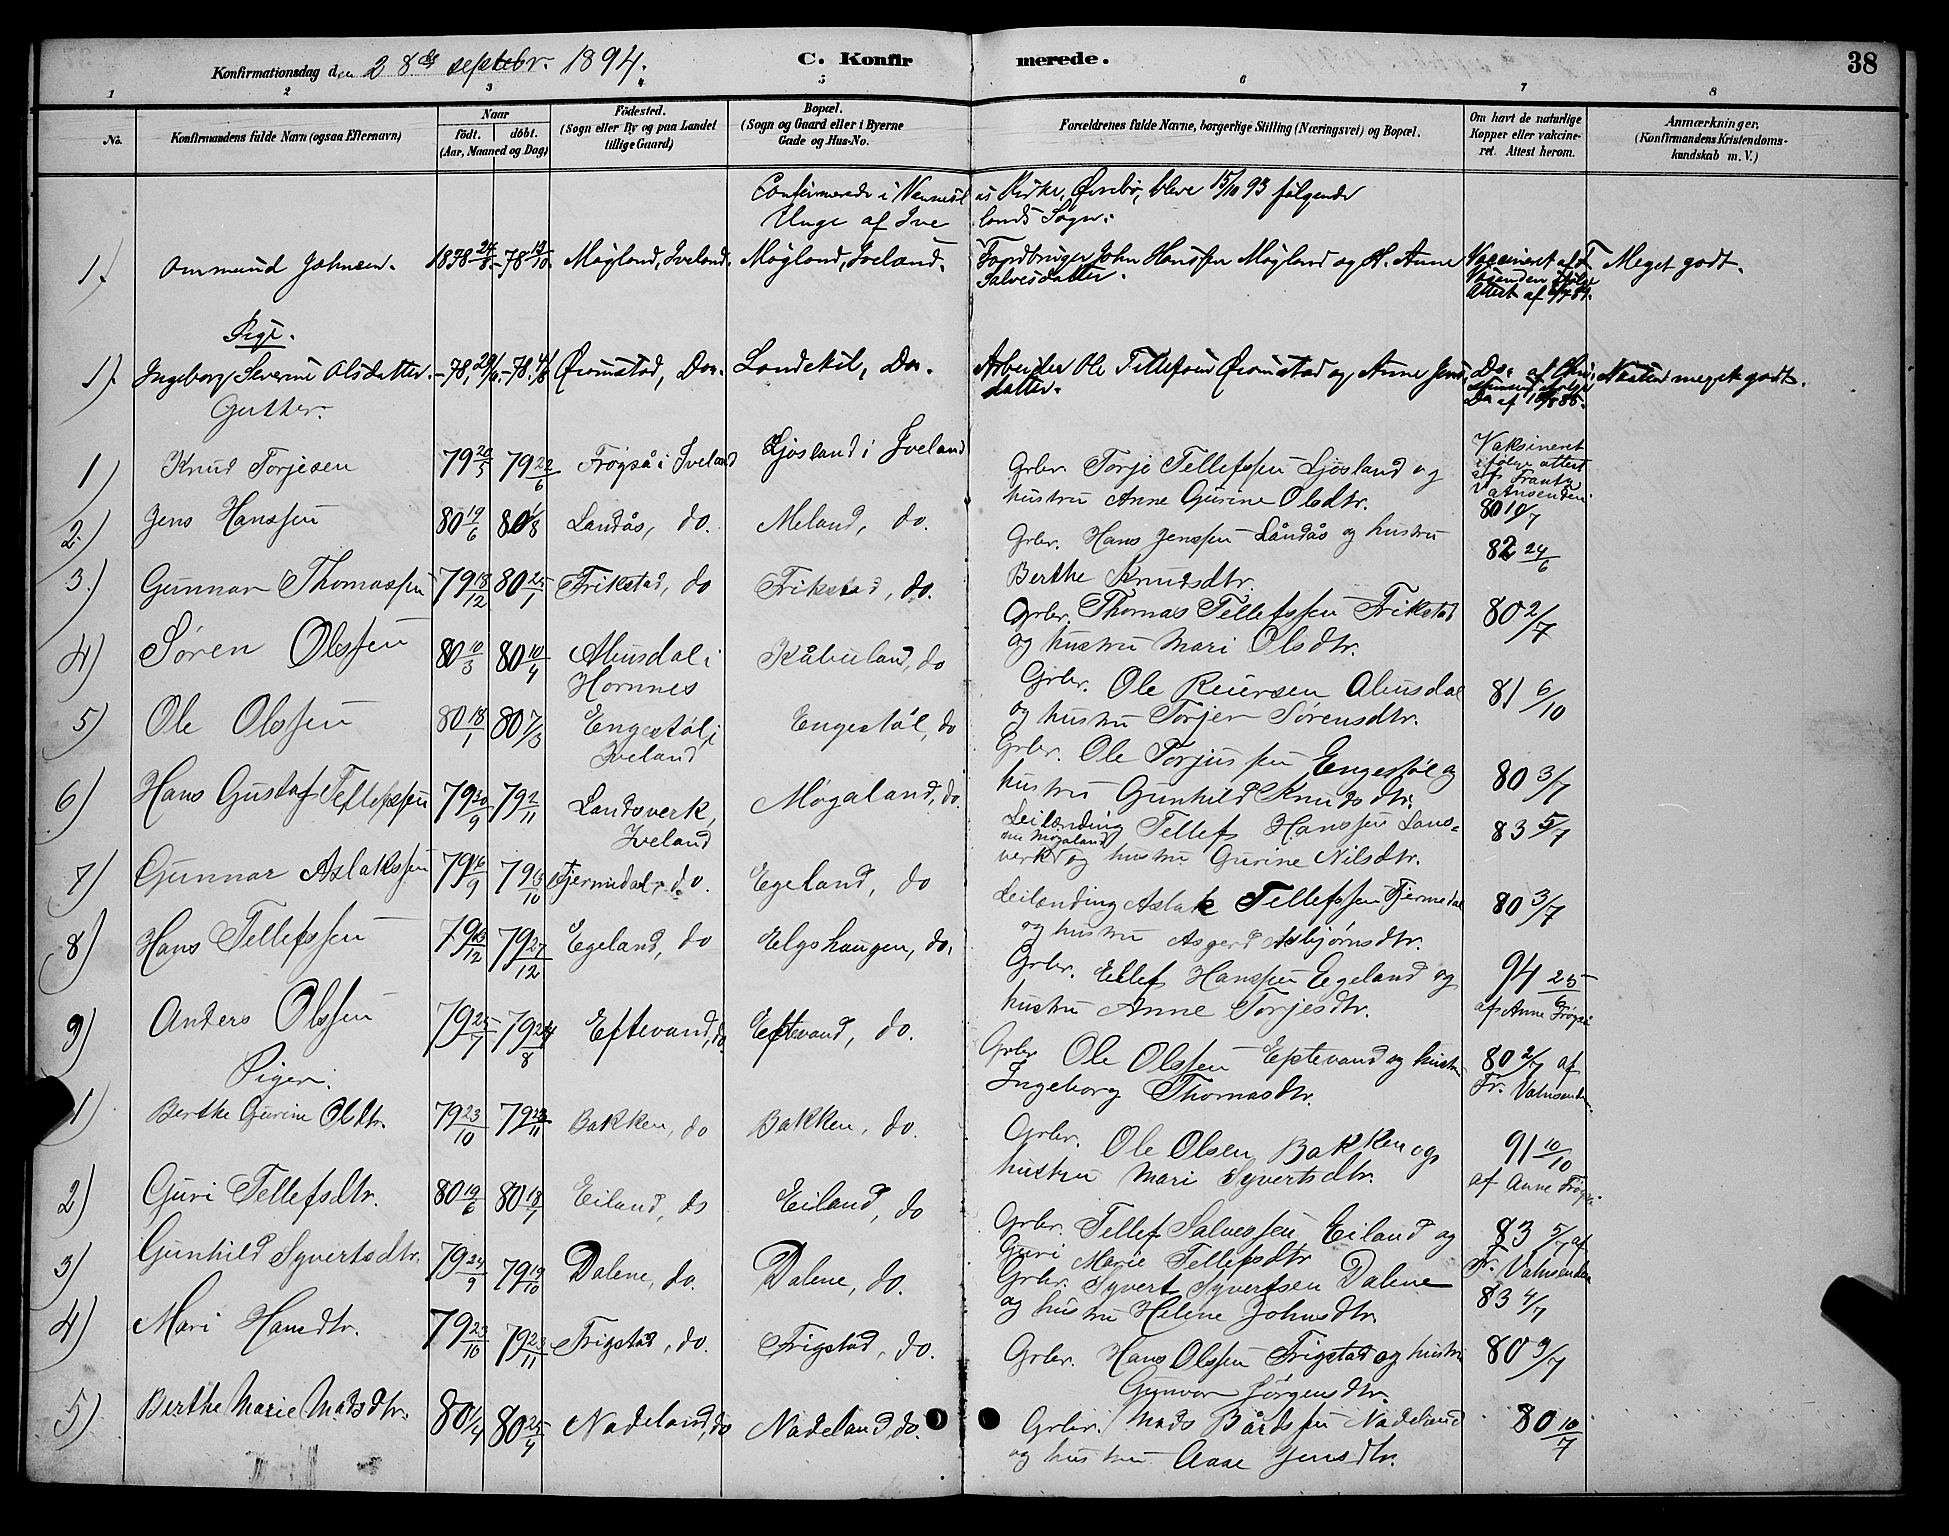 Konfirmationsdag den 28de septebr. 1894. C. Konfirmerede. 38
1 2 3 4 5 6 7 8
No. Konfirmandens fulde Navn (ogsaa Efternavn) Naar født. døbt. (Aar, Maaned og Dag) Fødested. (Sogn eller By og paa Landet tillige Gaard) Bopæl. (Sogn og Gaard eller i Byerne Gade og Hus-No. Forældrenes fulde Navne, borgerlige Stilling (Næringsvei) og Bopæl. Om havt de naturlige Kopper eller vakcineret. Attest herom. Anmærkninger, (Konfirmandens Kristendomskundskab m. V.)
Confirmerede i Vennesl Kirke, Øvrebø, bleve 15/10 93 følgende
Unge af Ivelands Sogn:
1.) Ommund Johnsen. 1878 24/8. -78 13/10. Møgland, Iveland. Møgland, Iveland. Jordbruger John Møgland og H. Anne Vaccineret af F. Meget godt.
Salvesdatter. Attest af
Pige.
1). Ingeborg Severine Olsdatter. -78, -78. Øvomstad, Do. Landekil, Do. Arbeider Ole Tellefsen Øvomstad og Anne Jens- Do. af Næsten meget godt.
datter. Do af
Gutter.
1) Knud Torjesen 79 20/5 79 22/6 Frøyså i Iveland Ljosland i Iveland Grbr. Torje Tellefssen Ljosland og Vaksineret
hustru Anne Gurine Olsdtr. ifølge attest af Frantz Vatnsenden 80 10/7
2.) Jens Hanssen 80 19/6 80 1/8 Landås, do. Meland, do. Grbr. Hans Jenssen Låndås og hustru 82 24/6
Berthe Knudsdtr.
3.) Gunnar Thomassen 79 18/12 80 25/1 Frikstad, do Frikstad, do. Grbr. Thomas Tellefssen Frikstad 80 2/7
og hustru Mari Olsdtr.
4) Søren Olssen 80 10/3 80 10/4 Ahusdal i Kåbuland, do Grbr. Ole Reiersen Ahusdal 81 6/10
Hornnes og hustru Torjer Sørensdtr.
5) Ole Olssen 80 18/1 80 7/3 Engestøl i Engestøl, do Grbr. Ole Torjussen Engestøl og 80 3/7
Iveland hustru Gunhild Knudsdtr.
6) Hans Gustaf Tellefssen 79 30/9 79 2/11 Landsverk, Møgaland, do. Leilænding Tellef Hanssen Lans= 83 5/7
Iveland nu Møgaland
verk og hustru Gurine Nilsdtr.
7) Gunnar Aslakssen 79 16/9 79 13/10 Fjermedal, do. Egeland, do Leilænding Aslak Tellefssen Fjermedal 80 3/7
og hustru Asgerd Asbjørnsdtr.
8) Hans Tellefssen 79 13/12 79 27/12 Egeland, do Elgshaugen, do. Grbr. Tellef Hanssen Egeland og 94 25/6
hustru Anne Torjesdtr. af Anne Frøyså
9) Anders Olssen 79 25/7 79 24/8 Eftevand, do. Eftevand, do. Grbr Ole Olssen Eptevand og hustru 80 2/7 af
Ingeborg Thomasdtr. Fr. Vatnsenden
Piger.
1) Berthe Gurine Olsdtr. 79 23/10 79 23/11 Bakken, do Bakken, do. Grbr. Ole Olsen Bakken og 91 10/10
hustru Mari Syvertsdtr. af Anne Frøyså
2) Guri Tellefsdtr. 80 19/6 80 18/7 Eiland, do Eiland, do Grbr. Tellef Salvessen Eiland og 83 5/7 af
Guri Marie Tellefsdtr Fr. Vatnsenden
3) Gunhild Syvertsdtr. 79 24/9 79 19/10 Dalene, do. Dalene, do. Grbr. Syvert Syvertsen Dalene 83 4/7
og hustru Helene Johnsdtr.
4) Mari Hansdtr. 79 23/10 79 23/11 Frigstad, do. Frigstad, do. Grbr. Hans Olssen Frigstad og hustru 80 3/7
Gunvor Jörgensdtr.
5) Berthe Marie Madsdtr. 80 1/4 80 25/4 Nadeland, do Nadeland, do. Grbr. Mads Bårdssen Nadeland 80 10/7
og hustru Aase Jensdtr.